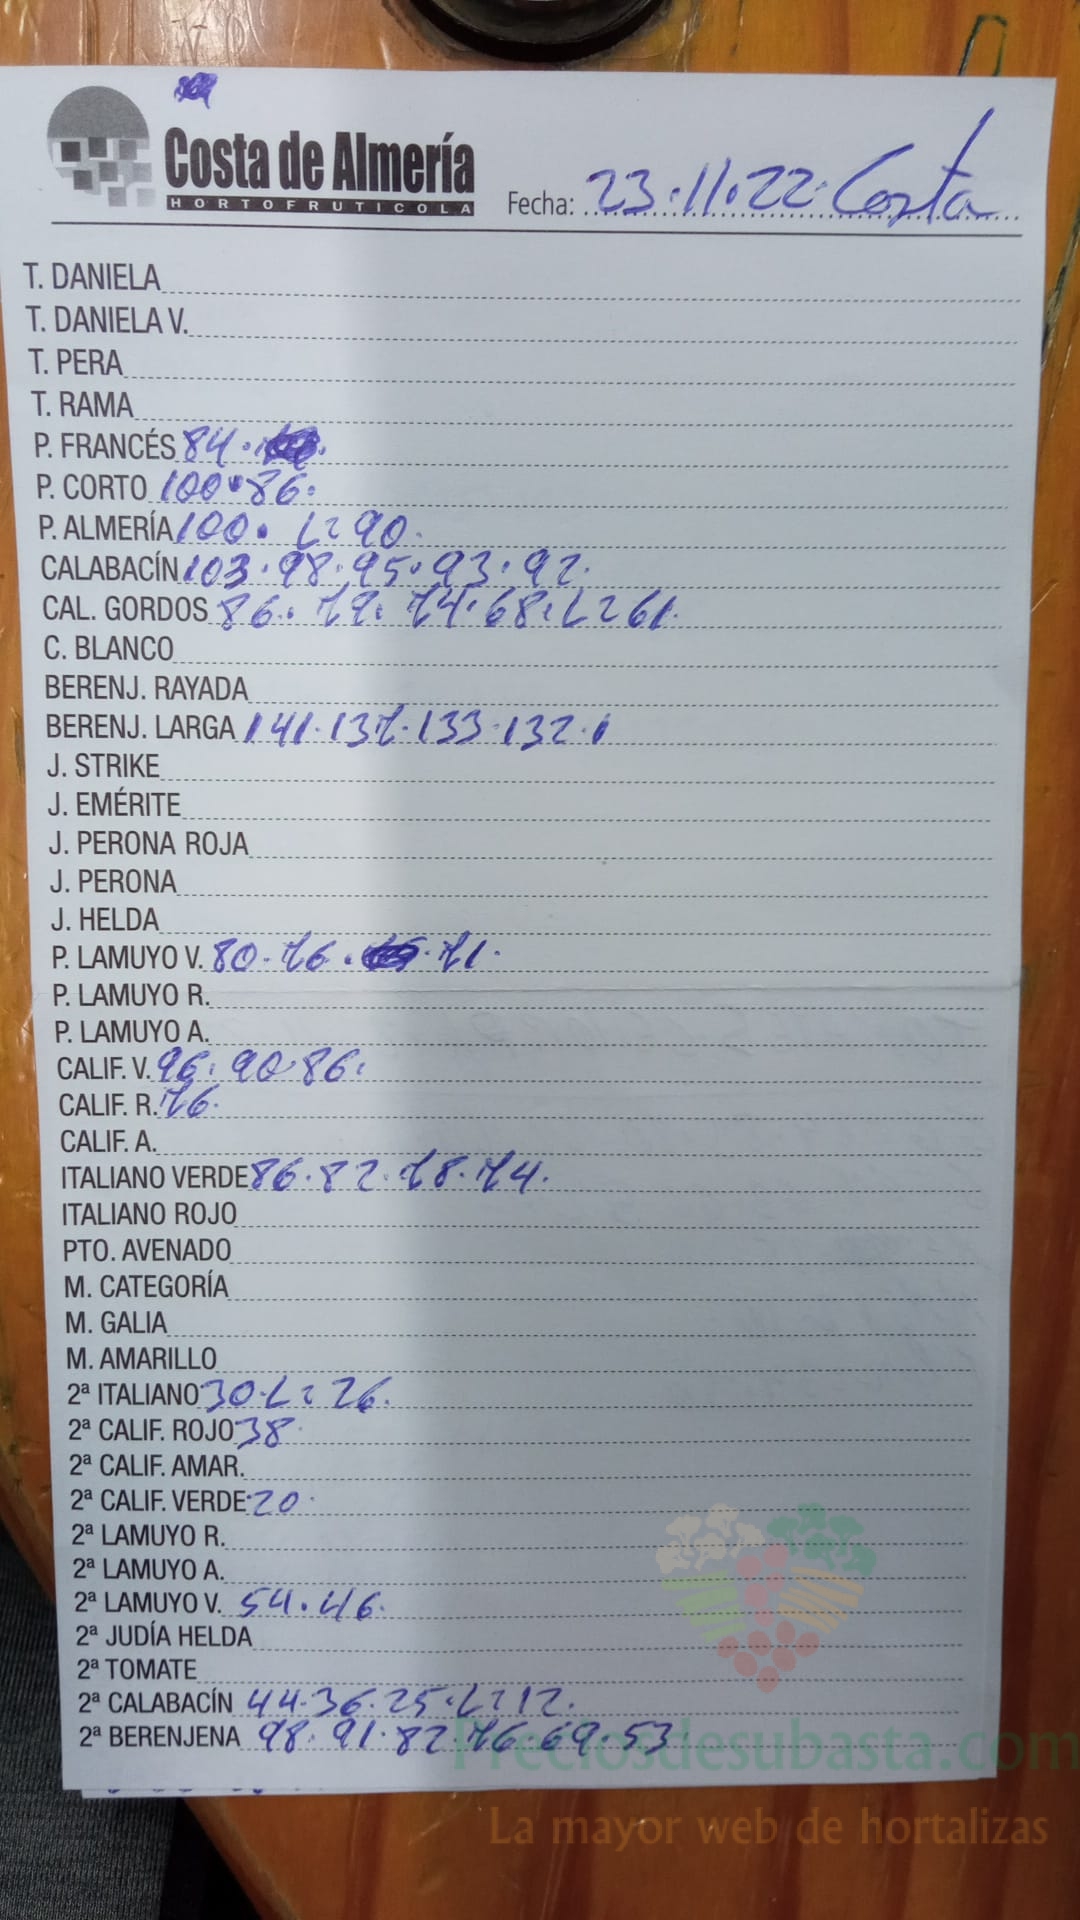 Costa de Almería
HORTOFRUTICOLA
Fecha: 23.11.22. Costa
T. DANIELA
T. DANIELA V.
T. PERA
T. RAMA
P. FRANCÉS 84.
P. CORTO 100.86.
P. ALMERÍA 100. L 2 90.
CALABACÍN 103.98.95.93.92.
CAL. GORDOS 86.79.74.68.L 2 61.
C. BLANCO
BERENJ. RAYADA
BERENJ. LARGA 141.137.133.132.
J. STRIKE
J. EMÉRITE
J. PERONA ROJA
J. PERONA
J. HELDA
P. LAMUYO V. 80.76. 71.
P. LAMUYO R.
P. LAMUYO A.
CALIF. V. 96.90.86.
CALIF. R. 76.
CALIF. A.
ITALIANO VERDE 86.82.78.74.
ITALIANO ROJO
PTO. AVENADO
M. CATEGORÍA
M. GALIA
M. AMARILLO
2ª ITALIANO 30.L 2 26.
2ª CALIF. ROJO 38.
2ª CALIF. AMAR.
2ª CALIF. VERDE 20.
2ª LAMUYO R.
2ª LAMUYO A.
2ª LAMUYO V. 54.46.
2ª JUDÍA HELDA
2ª TOMATE
2ª CALABACÍN 44.36.25.L 2 12.
2ª BERENJENA 98.91.82.76.69.53
Preciosdesubasta.com
La mayor web de hortalizas